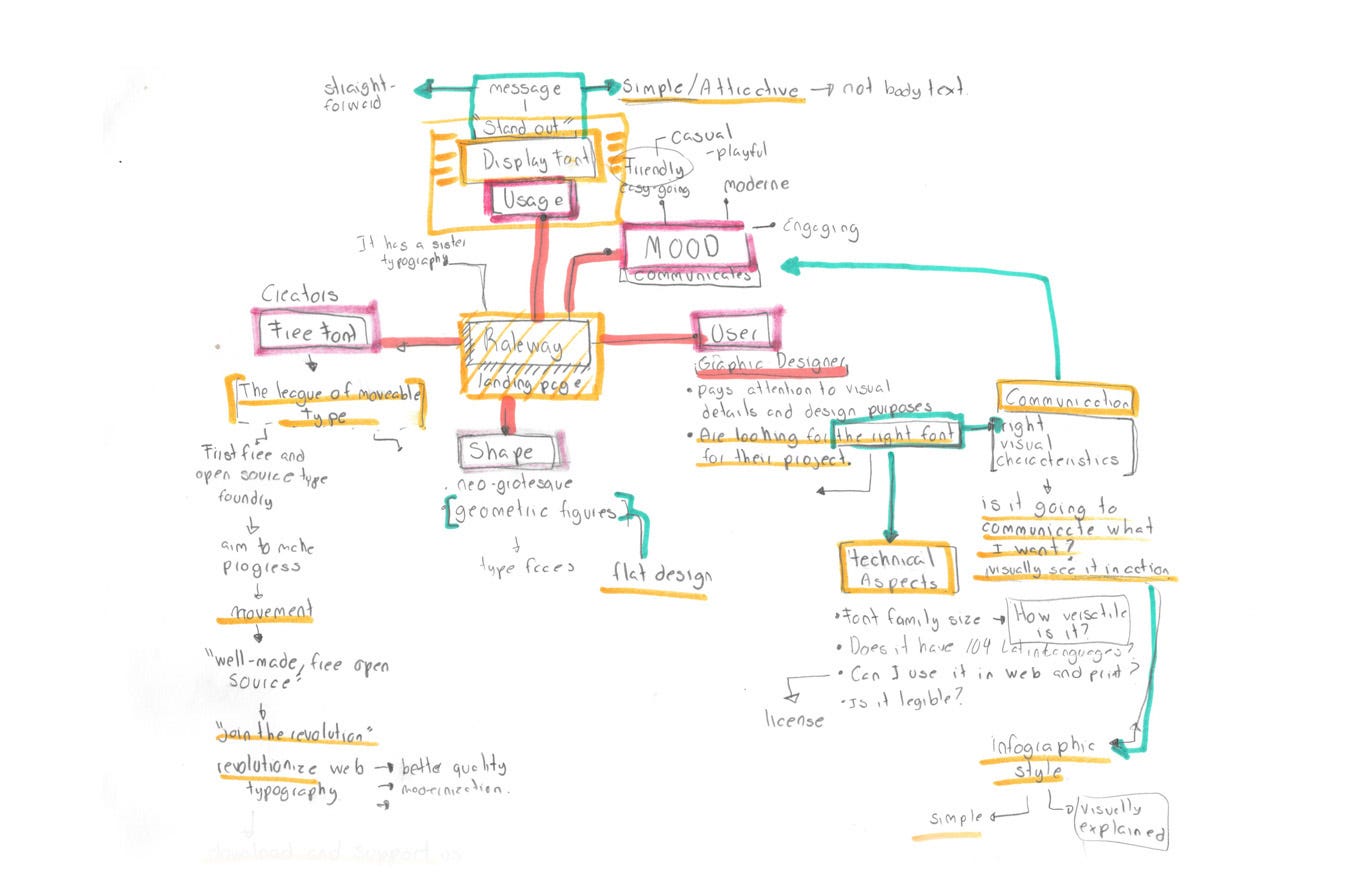 straight-
forward
message
"Stand out"
Simple/Attractive → not body text.
Display font
Usage
casual
-playful
Friendly
easy-going
moderne
Engaging
MOOD
communicates
It has a sister
typography
Creators
Free Font
The league of moveable
type
First free and
open source type
foundry
aim to make
progress
movement
"well-made, free open
source"
"join the revolution"
revolutionize web → better quality
typography → modernization.
download and support us
Raleway
landing page
Shape
. neo-grotesque
[geometric figures]
type faces
flat design
User
Graphic Designer
• pays attention to visual
details and design purposes
• Are looking for the right font
for their project.
Communication
right
visual
characteristics
is it going to
communicate what
I want?
visually see it in action
technical
Aspects
• Font family size → How versatile
is it?
• Does it have 104 Latin languages?
• Can I use it in web and print?
• Is it legible?
license
infographic
style
simple
visually
explained